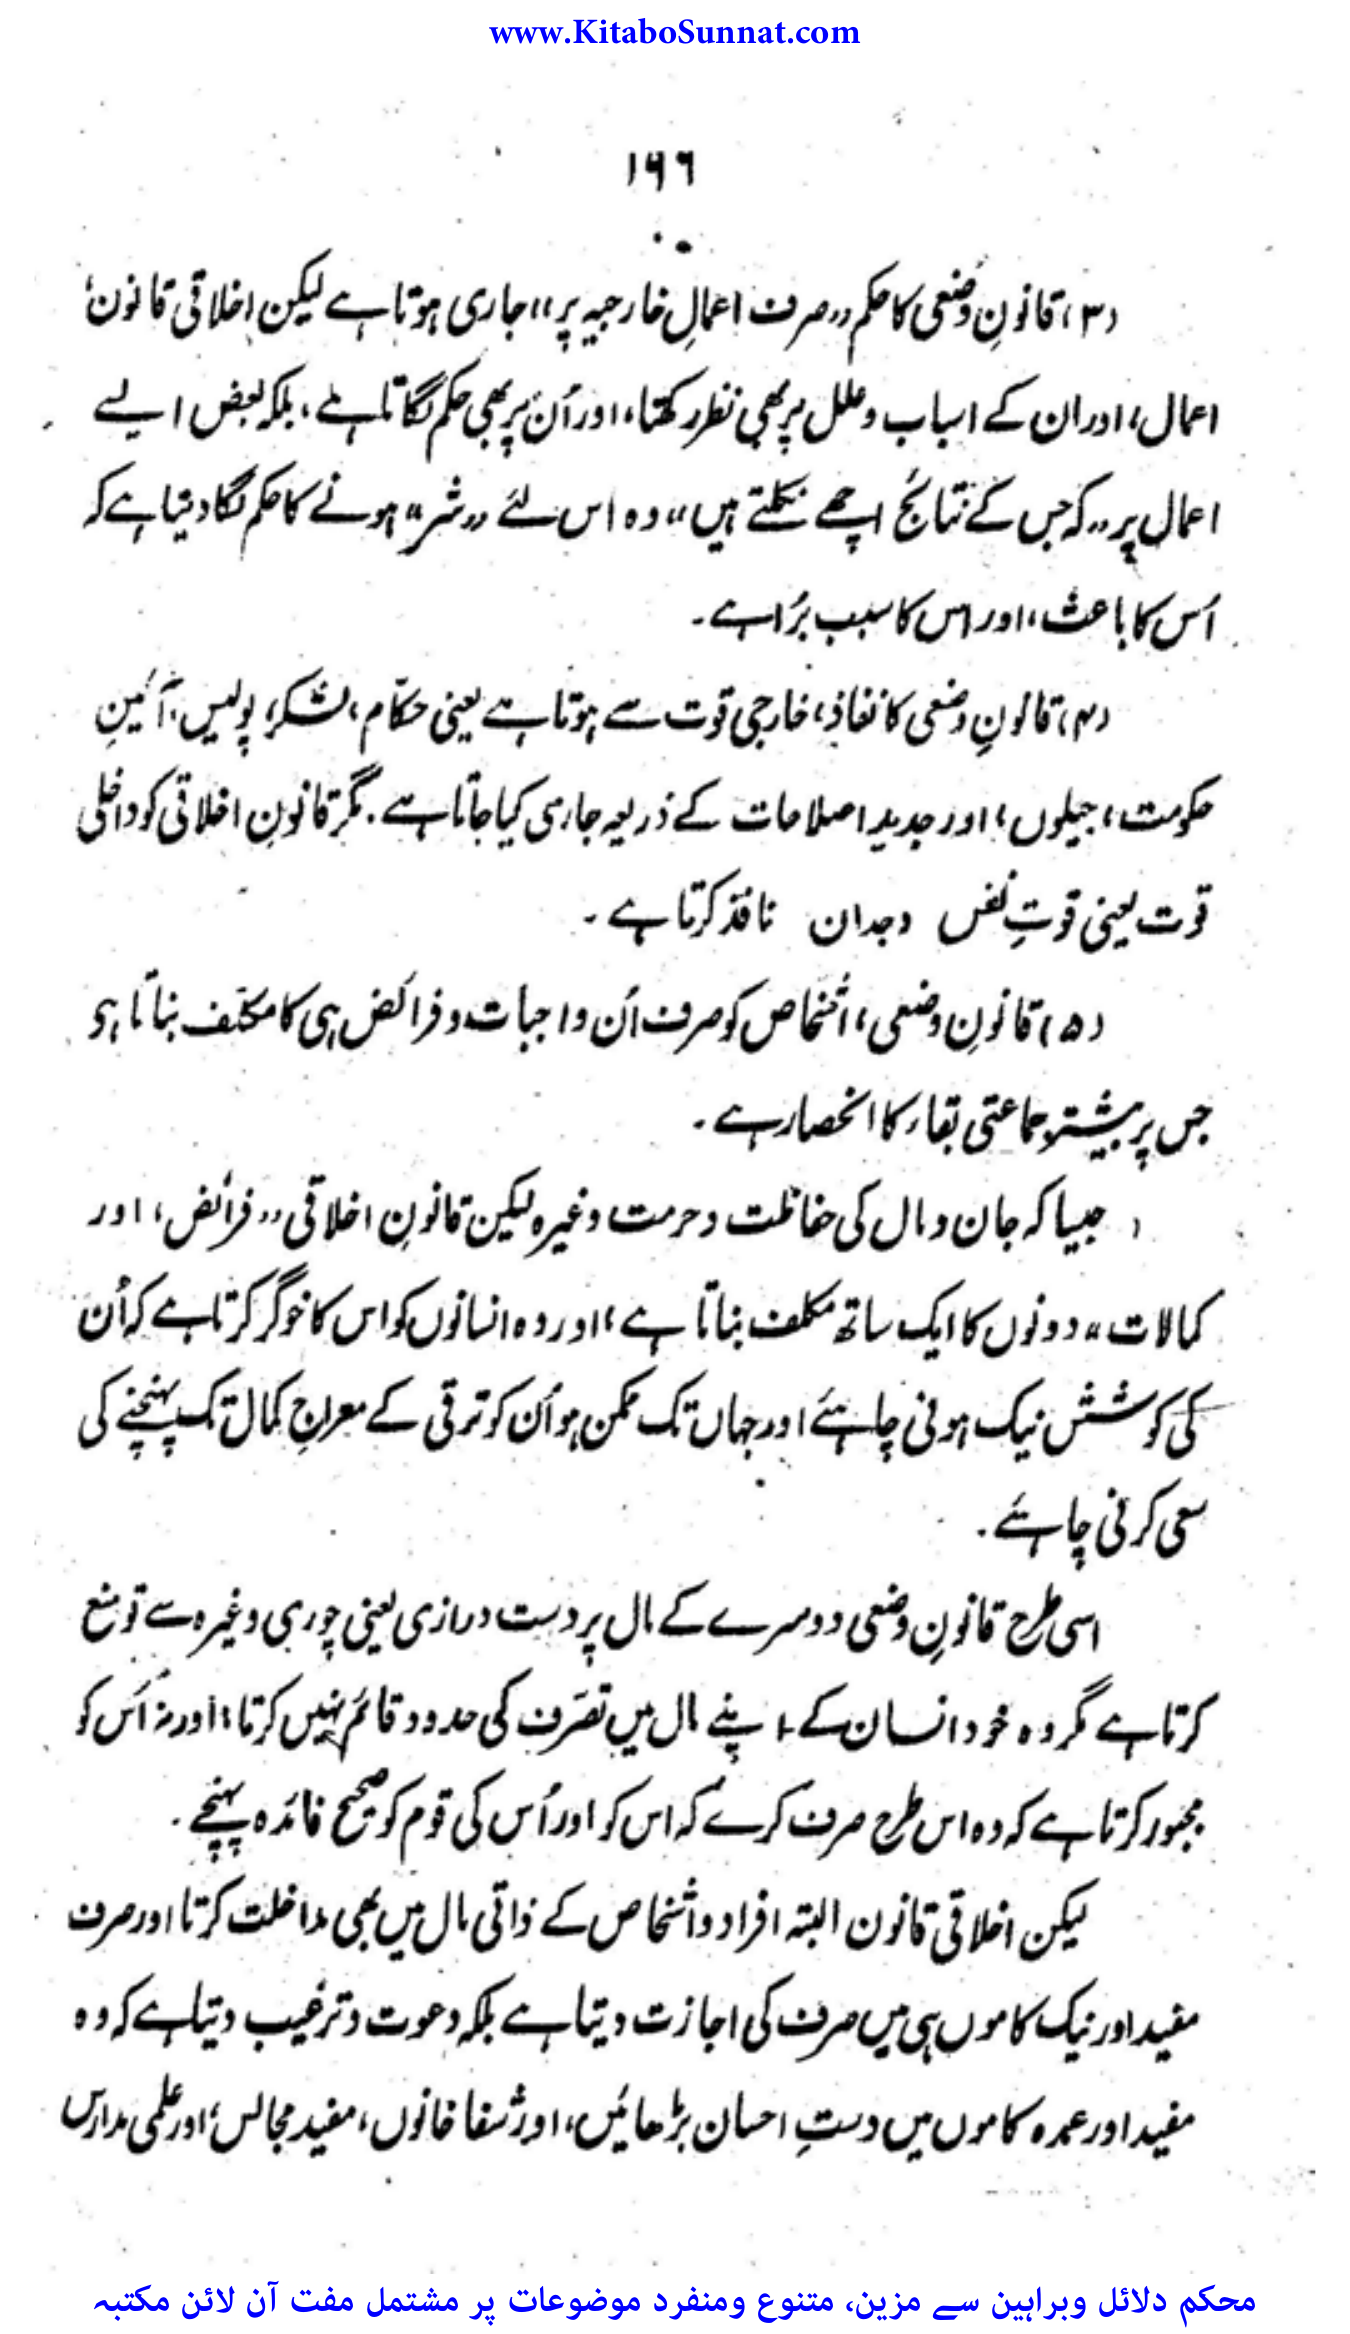 www.KitaboSunnat.com
۱۶۶
(۳) قانونِ وضعی کا حکم ,,صرف اعمالِ خارجیہ پر،، جاری ہوتا ہے لیکن اخلاقی قانون؛
اعمال؛ اور ان کے اسباب و علل پر بھی نظر رکھتا، اور اُن پر بھی حکم لگاتا ہے، بلکہ بعض ایسے
اعمال پر ,,کہ جس کے نتائج اچھے نکلتے ہیں،، وہ اس لئے ,,شر،، ہونے کا حکم لگا دیتا ہے کہ
اُس کا باعث، اور اس کا سبب بُرا ہے۔
(۴) قانونِ وضعی کا نفاذ، خارجی قوت سے ہوتا ہے یعنی حکّام، لشکر، پولیس، آئینِ
حکومت، جیلوں، اور جدید اصلاحات کے ذریعہ جاری کیا جاتا ہے۔ مگر قانونِ اخلاقی کو داخلی
قوت یعنی قوتِ نفس وجدان نافذ کرتا ہے۔
(۵) قانونِ وضعی، اشخاص کو صرف اُن واجبات و فرائض ہی کا مکلّف بناتا ہو
جس پر بیشتر جماعتی بقاء کا انحصار ہے۔
جیسا کہ جان و مال کی حفاظت و حرمت وغیرہ لیکن قانونِ اخلاقی ,,فرائض، اور
کمالات،، دونوں کا ایک ساتھ مکلف بناتا ہے، اور وہ انسانوں کو اس کا خوگر کرتا ہے کہ اُن
کی کوشش نیک ہونی چاہئے اور جہاں تک ممکن ہو اُن کو ترقی کے معراجِ کمال تک پہنچنے کی
سعی کرنی چاہئے۔
اسی طرح قانونِ وضعی دوسرے کے مال پر دست درازی یعنی چوری وغیرہ سے تو منع
کرتا ہے مگر وہ خود انسان کے اپنے مال میں تصرّف کی حدود قائم نہیں کرتا، اور نہ اُس کو
مجبور کرتا ہے کہ وہ اس طرح صرف کرے کہ اس کو اور اُس کی قوم کو صحیح فائدہ پہنچے۔
لیکن اخلاقی قانون البتہ افراد و اشخاص کے ذاتی مال میں بھی مداخلت کرتا اور صرف
مفید اور نیک کاموں ہی میں صرف کی اجازت دیتا ہے بلکہ دعوت و ترغیب دیتا ہے کہ وہ
مفید اور عمدہ کاموں میں دستِ احسان بڑھائیں، اور شفا خانوں، مفید مجالس، اور علمی مدارس
محکم دلائل وبراہین سے مزین، متنوع ومنفرد موضوعات پر مشتمل مفت آن لائن مکتبہ